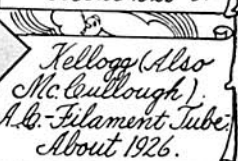 Kellogg (Also
McCullough).
A.C.-Filament Tube:
About 1926.